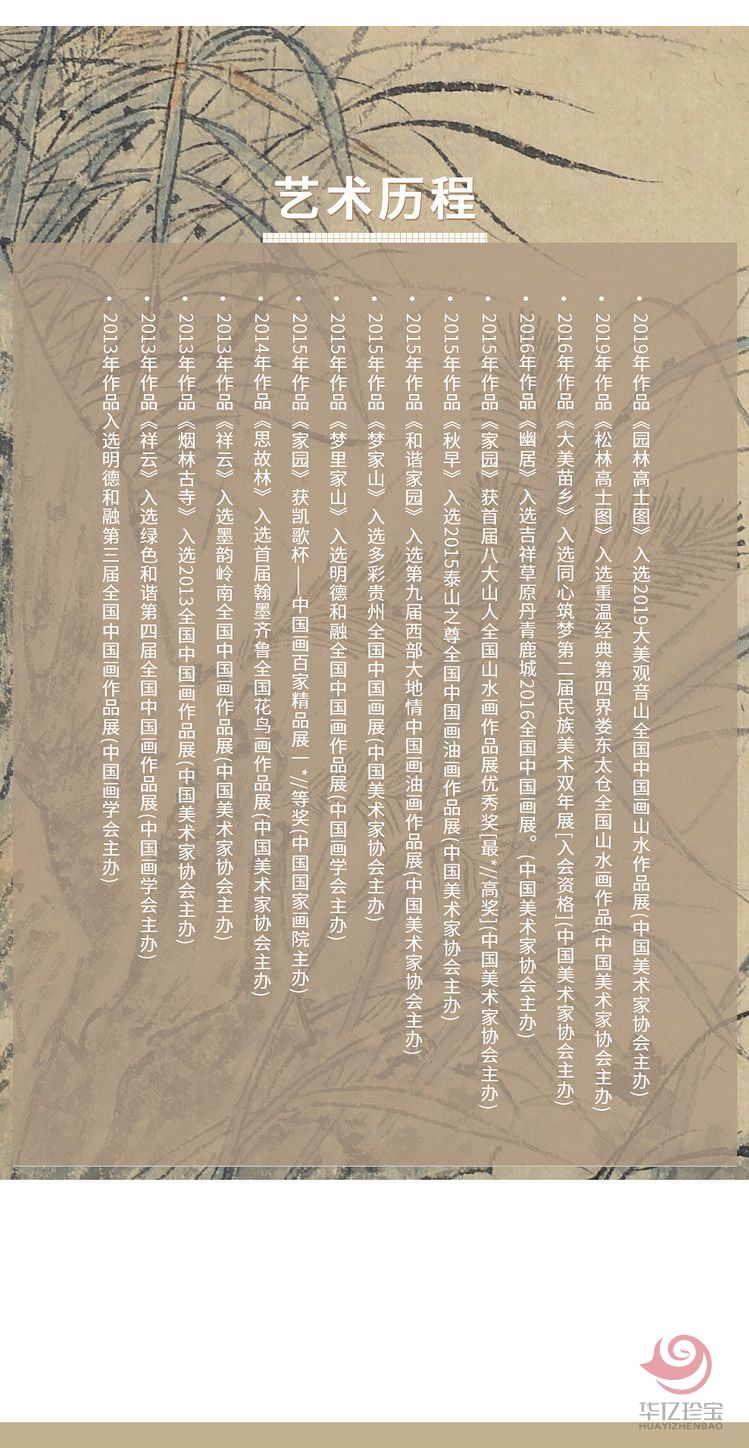 艺术历程
• 2019年作品《园林高士图》入选2019大美观音山全国中国画山水作品展(中国美术家协会主办)
• 2019年作品《松林高士图》入选重温经典第四界娄东太仓全国山水画作品(中国美术家协会主办)
• 2016年作品《大美苗乡》入选同心筑梦第二届民族美术双年展[入会资格](中国美术家协会主办)
• 2016年作品《幽居》入选吉祥草原丹青鹿城2016全国中国画展。(中国美术家协会主办)
• 2015年作品《家园》获首届八大山人全国山水画作品展优秀奖[最*//高奖](中国美术家协会主办)
• 2015年作品《秋早》入选2015泰山之尊全国中国画油画作品展(中国美术家协会主办)
• 2015年作品《和谐家园》入选第九届西部大地情中国画油画作品展(中国美术家协会主办)
• 2015年作品《梦家山》入选多彩贵州全国中国画展(中国美术家协会主办)
• 2015年作品《梦里家山》入选明德和融全国中国画作品展(中国画学会主办)
• 2015年作品《家园》获凯歌杯——中国画百家精品展一*//等奖(中国国家画院主办)
• 2014年作品《思故林》入选首届翰墨齐鲁全国花鸟画作品展(中国美术家协会主办)
• 2013年作品《祥云》入选墨韵岭南全国中国画作品展(中国美术家协会主办)
• 2013年作品《烟林古寺》入选2013全国中国画作品展(中国美术家协会主办)
• 2013年作品《祥云》入选绿色和谐第四届全国中国画作品展(中国画学会主办)
• 2013年作品入选明德和融第三届全国中国画作品展(中国画学会主办)
华亿珍宝
HUAYIZHENBAO